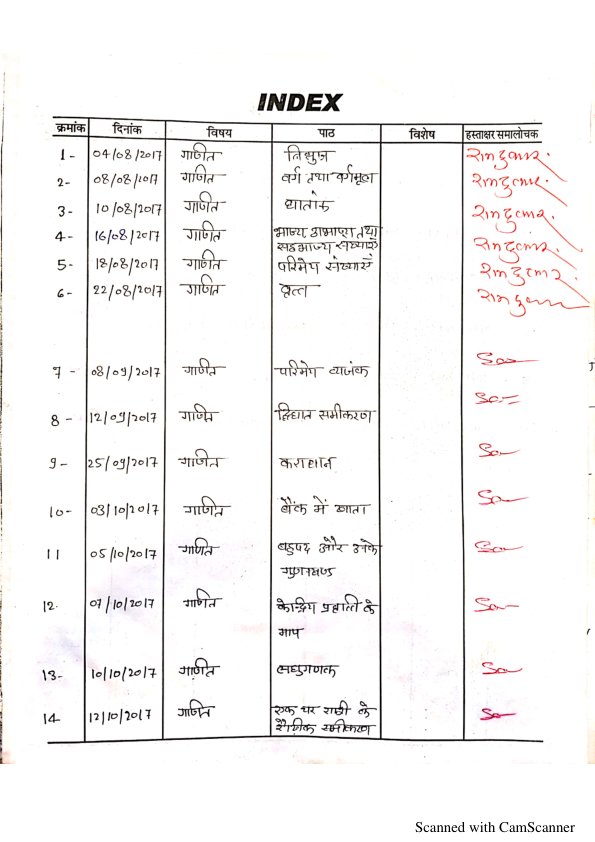 INDEX
क्रमांक दिनांक विषय पाठ विशेष हस्ताक्षर समालोचक
1- 04/08/2017 गणित त्रिभुज
2- 08/08/2017 गणित वर्ग तथा वर्गमूल
3- 10/08/2017 गणित घातांक
4- 16/08/2017 गणित भाज्य अभाज्य तथा
सहभाज्य संख्याएँ
5- 18/08/2017 गणित परिमेय संख्याएँ
6- 22/08/2017 गणित वृत्त
7- 08/09/2017 गणित परिमेय व्यंजक
8- 12/09/2017 गणित द्विघात समीकरण
9- 25/09/2017 गणित कराधान
10- 03/10/2017 गणित बैंक में खाता
11 05/10/2017 गणित बहुपद और उनके
गुणनखण्ड
12. 07/10/2017 गणित केन्द्रिय प्रवृत्ति के
माप
13- 10/10/2017 गणित लघुगणक
14 12/10/2017 गणित एक चर राशी के
रैखिक समीकरण
Scanned with CamScanner